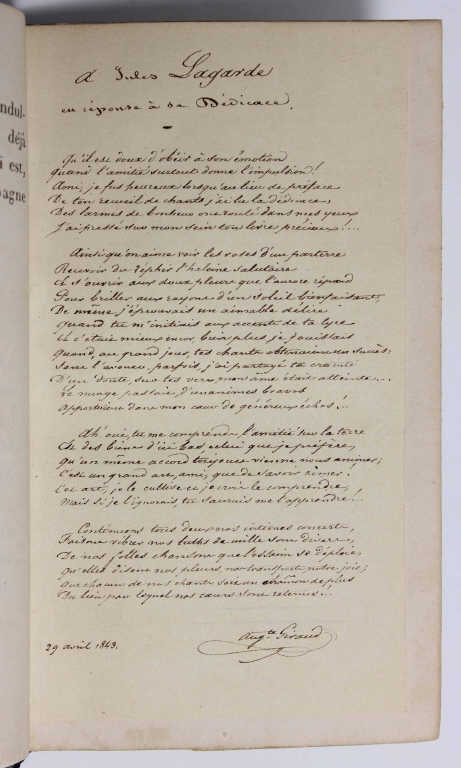 ndul-
déjà
i est,
pagne
A Jules Lagarde
en réponse à sa Dédicace.
Qu'il est doux d'obéir à son émotion
quand l'amitié surtout donne l'impulsion!
Ami, je fus heureux lorsqu'au lieu de préface
De ton recueil de chants, j'ai lu la dédicace,
Des larmes de bonheur ont roulé dans mes yeux
J'ai pressé sur mon sein ton livre précieux....
Ainsi qu'on aime voir les roses d'un parterre
Recevoir du zéphir l'haleine salutaire
Et s'ouvrir aux doux pleurs que l'aurore répand
Pour briller aux rayons d'un soleil bienfaisant,
De même j'éprouvais un aimable délire
Quand tu m'initiais aux accents de ta lyre
Et c'était mieux encor, bien plus je jouissais
Quand, au grand jour, tes chants obtenaient du succès:
Sans l'avouer parfois, j'ai partagé ta crainte
D'un doute, sur tes vers mon âme était atteinte...
Le nuage passait, d'unanimes bravos
Apportaient dans mon cœur de généreux échos!..
Ah! oui, tu me comprends, l'amitié sur la terre
Est des biens d'ici bas celui que je préfère,
Qu'un même accord toujours vienne nous animer;
C'est un grand art, ami, que de savoir aimer!
Cet art, je le cultive et je crois le comprendre,
Mais si je l'ignorais, tu saurais me l'apprendre!..
Continuons tous deux nos intimes concerts,
Faisons vibrer nos luths de mille sons divers,
De nos folles chansons que l'essaim se déploie,
Qu'elles disent nos pleurs, nos transports, notre joie;
Que chacun de nos chants soit un chaînon de plus
Du lien par lequel nos cœurs sont retenus...
29 avril 1843.
Aug.te Giraud